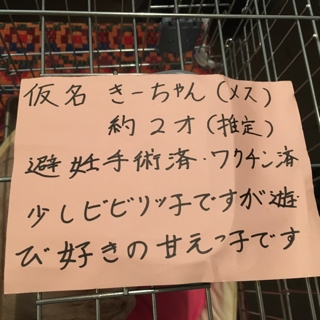 仮名 きーちゃん(メス)
約2才(推定)
避妊手術済・ワクチン済
少しビビリッ子ですが遊
び好きの甘えっ子です